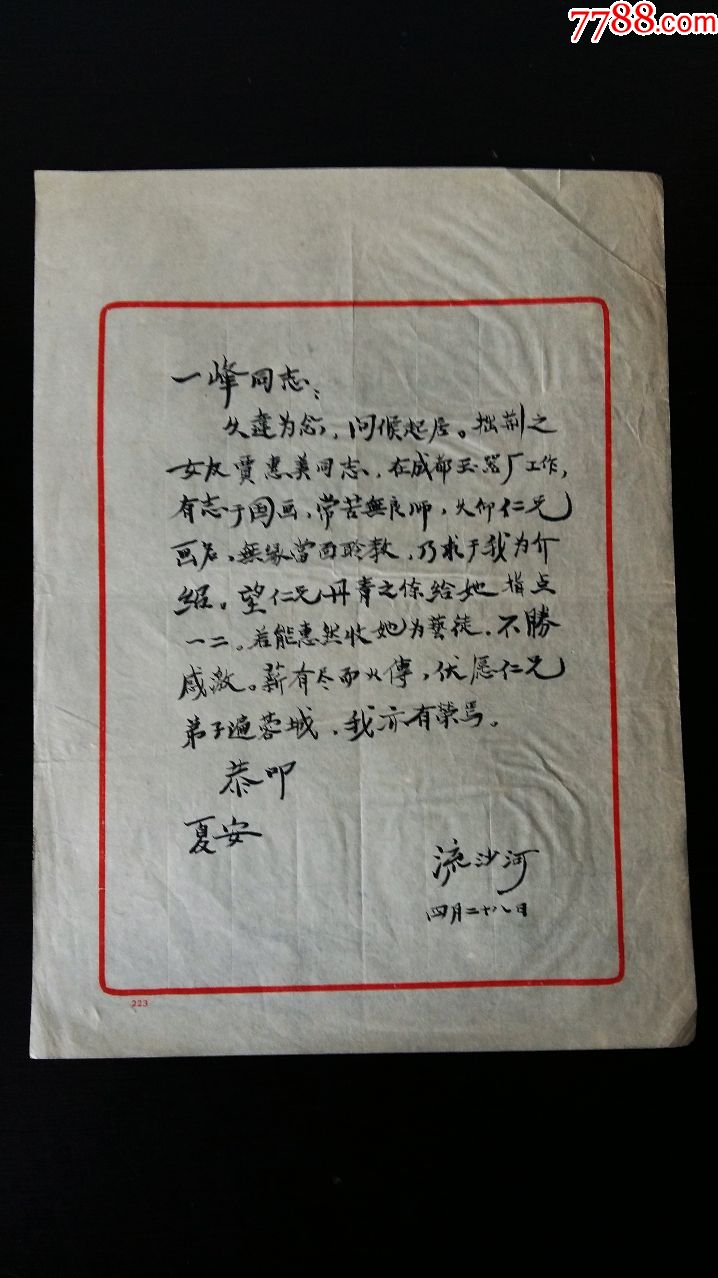 7788.com
一峰同志：
久違为念，问候起居。拙荆之
女友賈惠美同志，在成都玉器厂工作，
有志于国画，常苦無良师，久仰仁兄
画名，無缘当面聆教，乃求于我为介
绍。望仁兄丹青之馀给她指点
一二。若能惠然收她为藝徒，不勝
感激。薪有尽而火傳，伏愿仁兄
弟子遍蓉城，我亦有荣焉。
恭叩
夏安
流沙河
四月二十八日
223